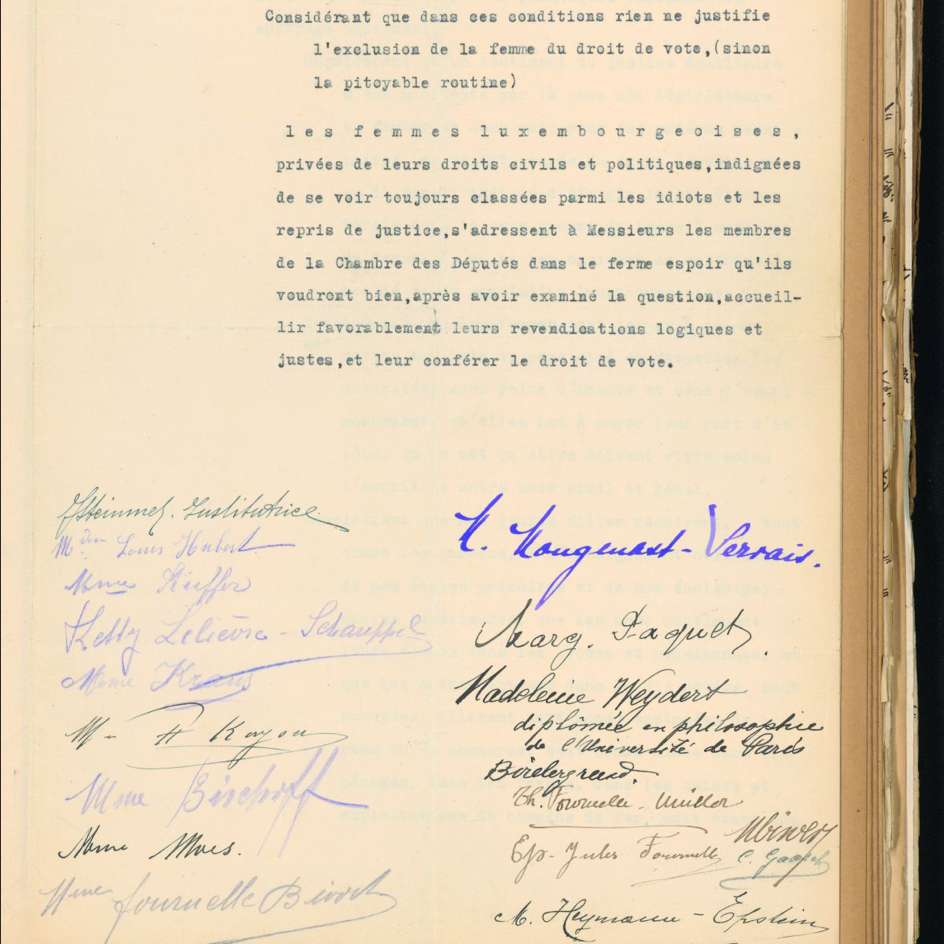 Considérant que dans ces conditions rien ne justifie
l'exclusion de la femme du droit de vote,(sinon
la pitoyable routine)
les femmes luxembourgeoises,
privées de leurs droits civils et politiques,indignées
de se voir toujours classées parmi les idiots et les
repris de justice,s'adressent à Messieurs les membres
de la Chambre des Députés dans le ferme espoir qu'ils
voudront bien,après avoir examiné la question,accueil-
lir favorablement leurs revendications logiques et
justes,et leur conférer le droit de vote.
Institutrice
Louis Hubert
Mme Kieffer
Ketty Lelièvre - Schauffel
Mme Kraus
Mme Bischoff
Mme Moes.
Mme Fournelle
M. Mougenast - Servais.
Marg Paquet.
Madeleine Weydert
diplômée en philosophie
de l'Université de Paris
Th. Fournelle - Müller
Ep. Jules Fournelle
M. Heymann - Epstein